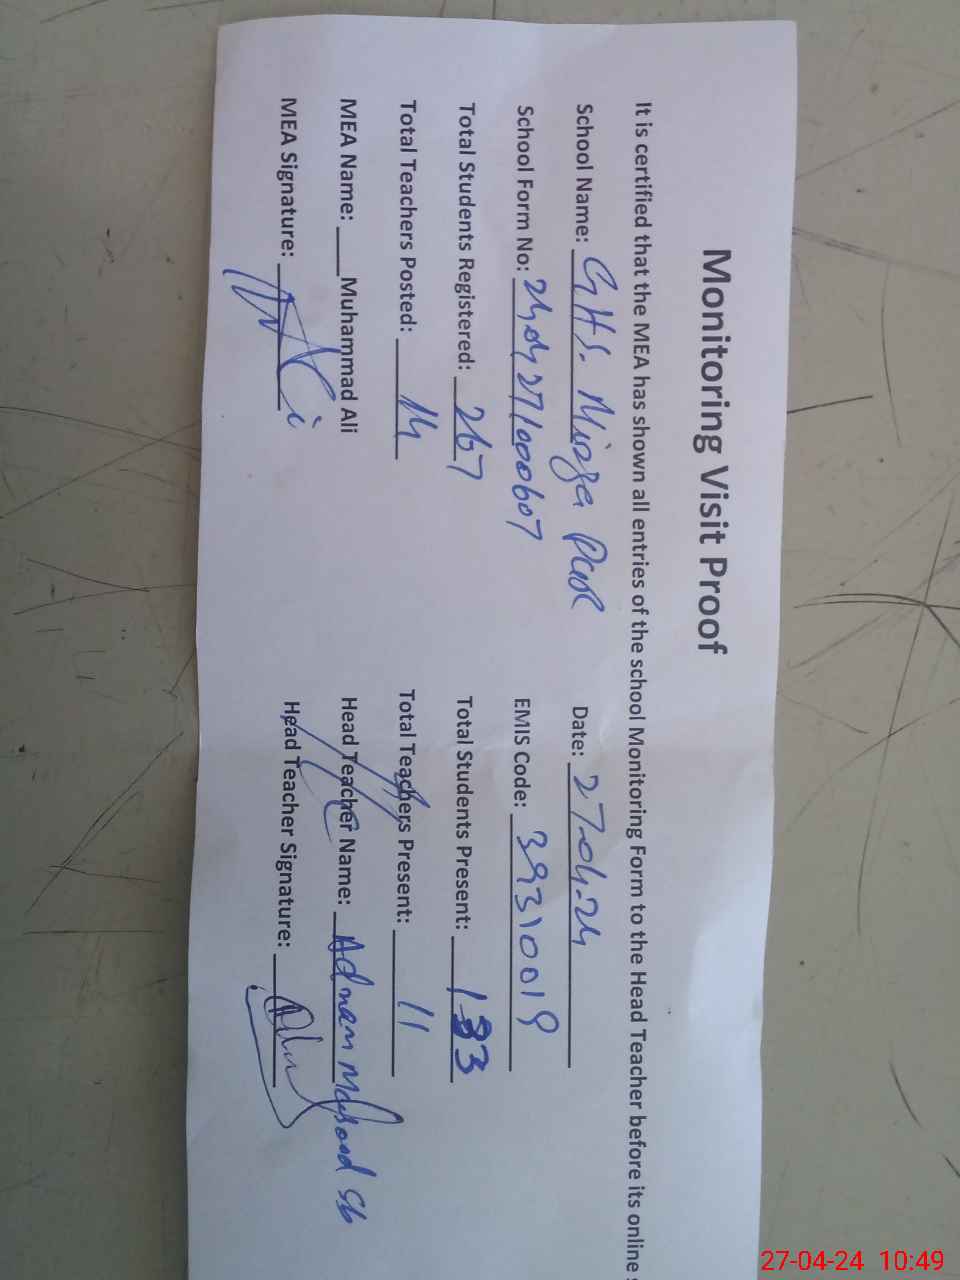 Monitoring Visit Proof
It is certified that the MEA has shown all entries of the school Monitoring Form to the Head Teacher before its online
School Name: GHS. Mirza Pur Date: 27-04-24
School Form No: 2404271000607 EMIS Code: 39310019
Total Students Registered: 267 Total Students Present: 183
Total Teachers Posted: 14 Total Teachers Present: 11
MEA Name: Muhammad Ali Head Teacher Name: Adnan Masood Sb
MEA Signature: Head Teacher Signature:
27-04-24 10:49